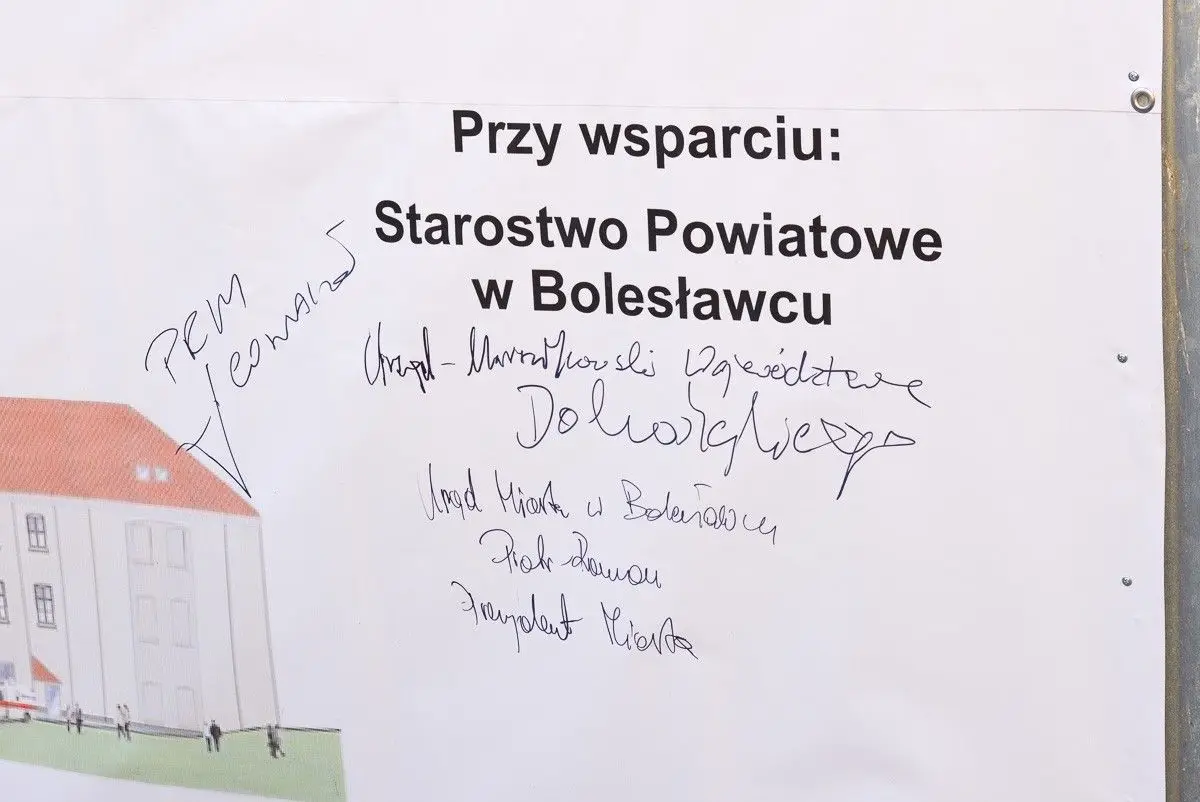 Przy wsparciu:
Starostwo Powiatowe
w Bolesławcu
Urząd Marszałkowski Województwa
Dolnośląskiego
Urząd Miasta w Bolesławcu
Piotr Roman
Prezydent Miasta